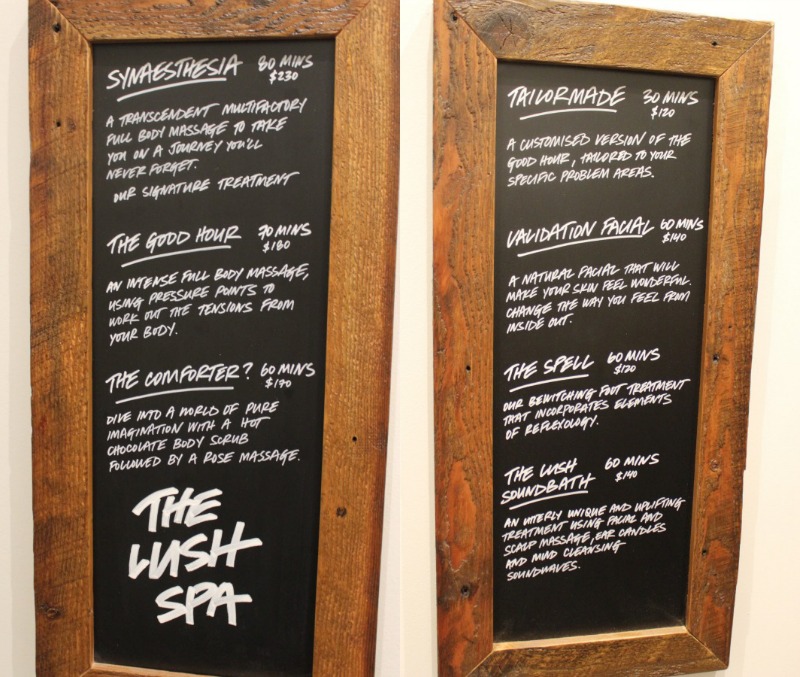 SYNAESTHESIA 80 MINS
$230
A TRANSCENDENT MULTIFACTORY
FULL BODY MASSAGE TO TAKE
YOU ON A JOURNEY YOU'LL
NEVER FORGET.
OUR SIGNATURE TREATMENT
THE GOOD HOUR 70 MINS
$180
AN INTENSE FULL BODY MASSAGE,
USING PRESSURE POINTS TO
WORK OUT THE TENSIONS FROM
YOUR BODY.
THE COMFORTER? 60 MINS
$170
DIVE INTO A WORLD OF PURE
IMAGINATION WITH A HOT
CHOCOLATE BODY SCRUB
FOLLOWED BY A ROSE MASSAGE.
THE
LUSH
SPA
TAILORMADE 30 MINS
$120
A CUSTOMISED VERSION OF THE
GOOD HOUR, TAILORED TO YOUR
SPECIFIC PROBLEM AREAS.
VALIDATION FACIAL 60 MINS
$140
A NATURAL FACIAL THAT WILL
MAKE YOUR SKIN FEEL WONDERFUL.
CHANGE THE WAY YOU FEEL FROM
INSIDE OUT.
THE SPELL 60 MINS
$120
OUR BEWITCHING FOOT TREATMENT
THAT INCORPORATES ELEMENTS
OF REFLEXOLOGY.
THE LUSH 60 MINS
SOUNDBATH $140
AN UTTERLY UNIQUE AND UPLIFTING
TREATMENT USING FACIAL AND
SCALP MASSAGE, EAR CANDLES
AND MIND CLEANSING
SOUNDWAVES.